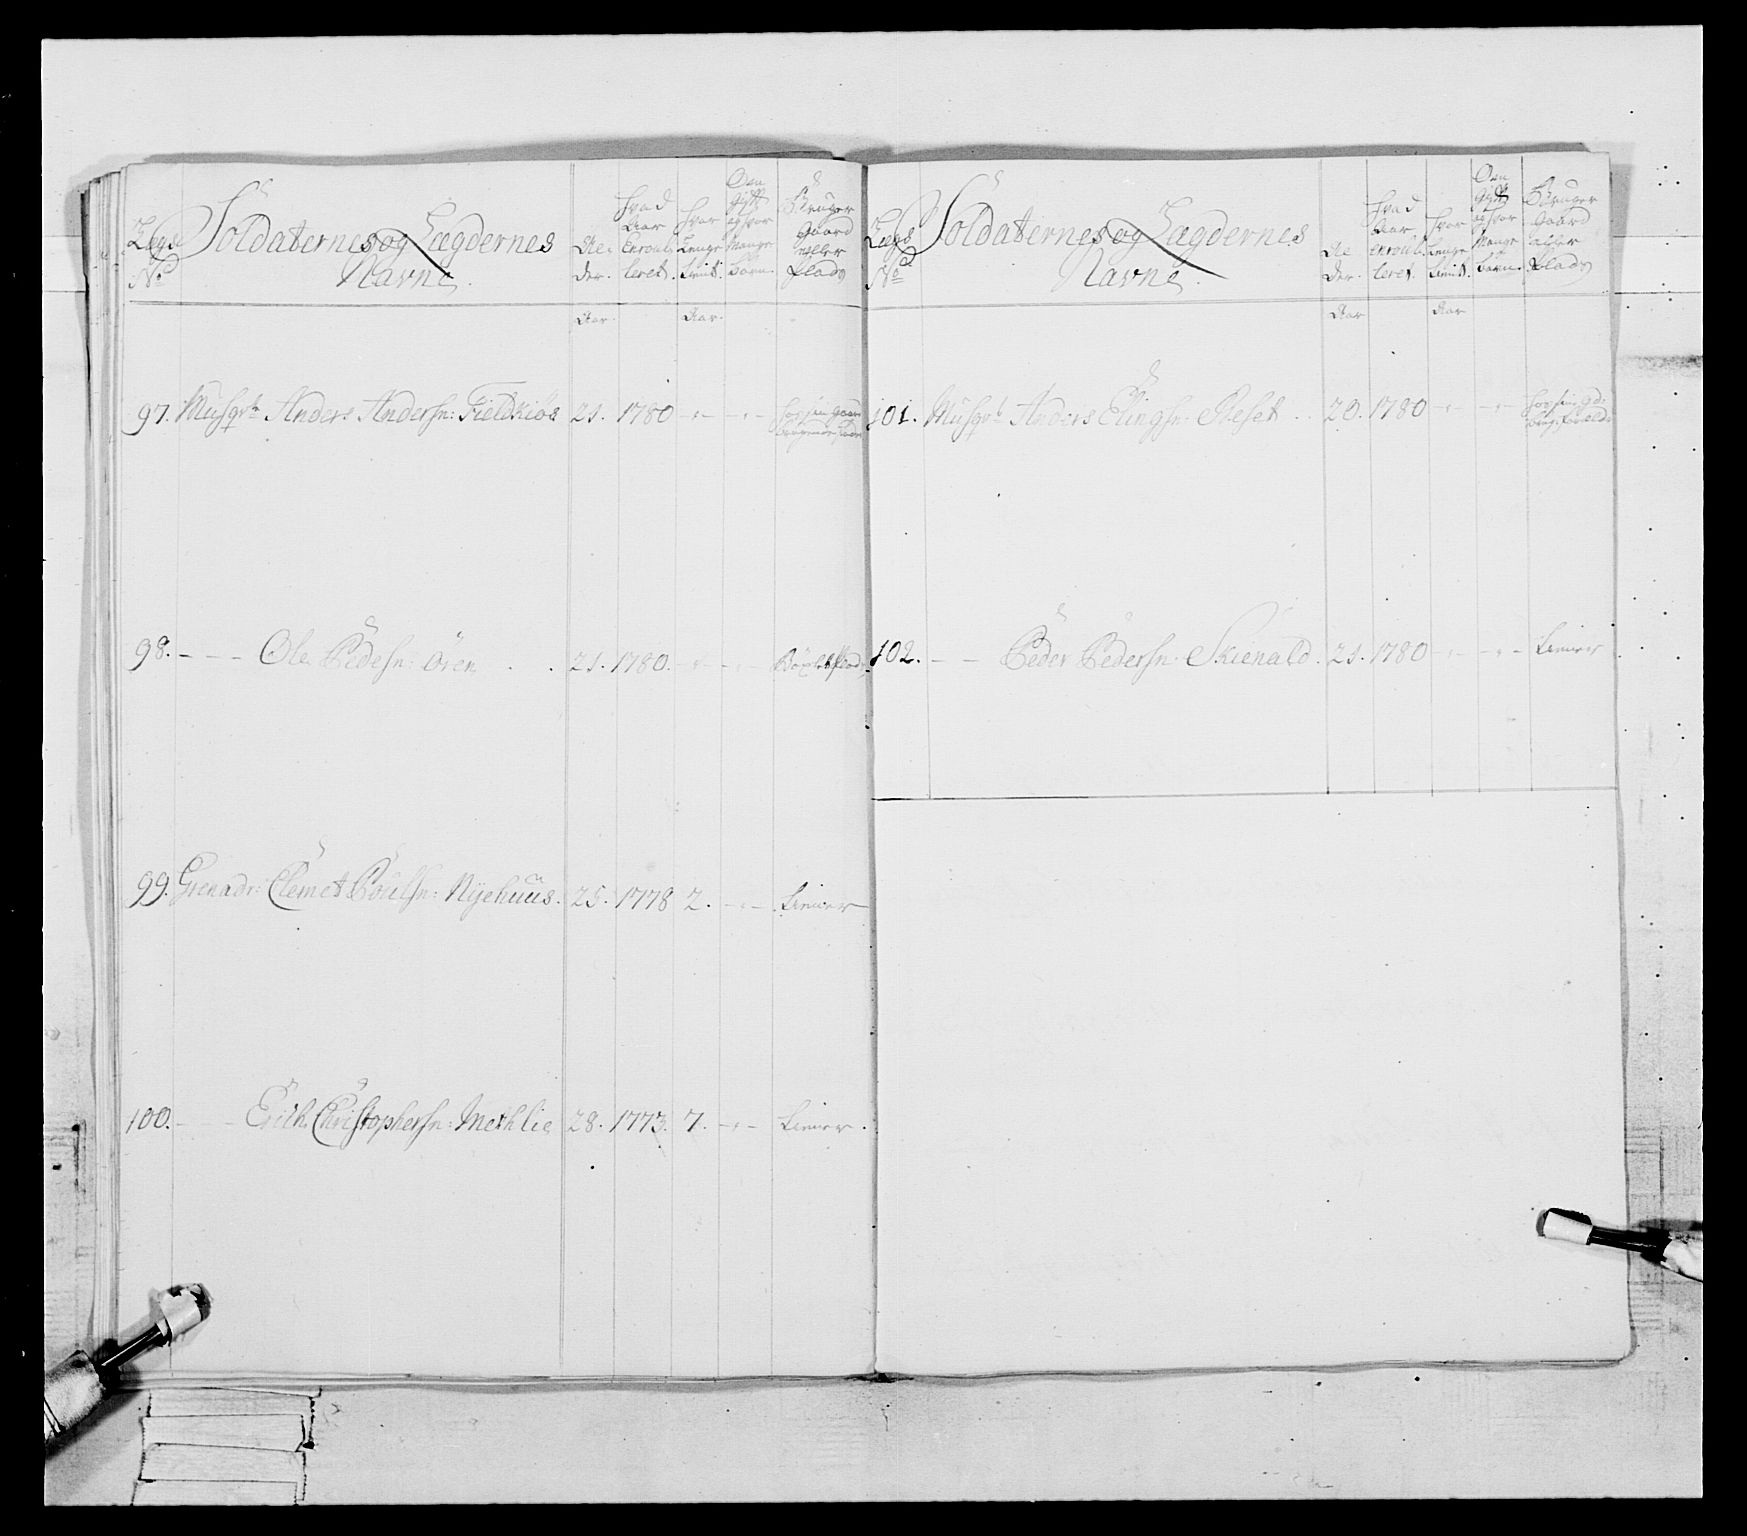 Lægs No Soldaternes og Lægdernes Navne. Al: der. Hvad Aar Enroul: leret. Hvor Lenge tient. Om gift og hvor Mange Børn. Bruger Gaard eller Plads
Aar. Aar.
97. Musqrt Anders Andersn: Fieldkiøs 21. 1780 -"- -"-
98. - - - Ole Pedesn: Ören . . 21. 1780. -"- -"-
99. Grenadr: Clemet Poulsn: Nÿehuus. 25. 1778 2. -"- tiener
100. - - - Erich Christophersn: Methlie 28. 1773. 7. -"- tiener.
Lægs No Soldaternes og Lægdernes Navne. Al der. Hvad Aar enroul: leret. Hvor Lenge tient. Om gift og hvor Mange børn. Bruger Gaard eller Plads
Aar Aar
101. Musqrt Anders Elingsn: Reset . . 20. 1780 -"- -"-
102. - - Peder Pedersn: Skienald. 21. 1780 -"- -"- tiener